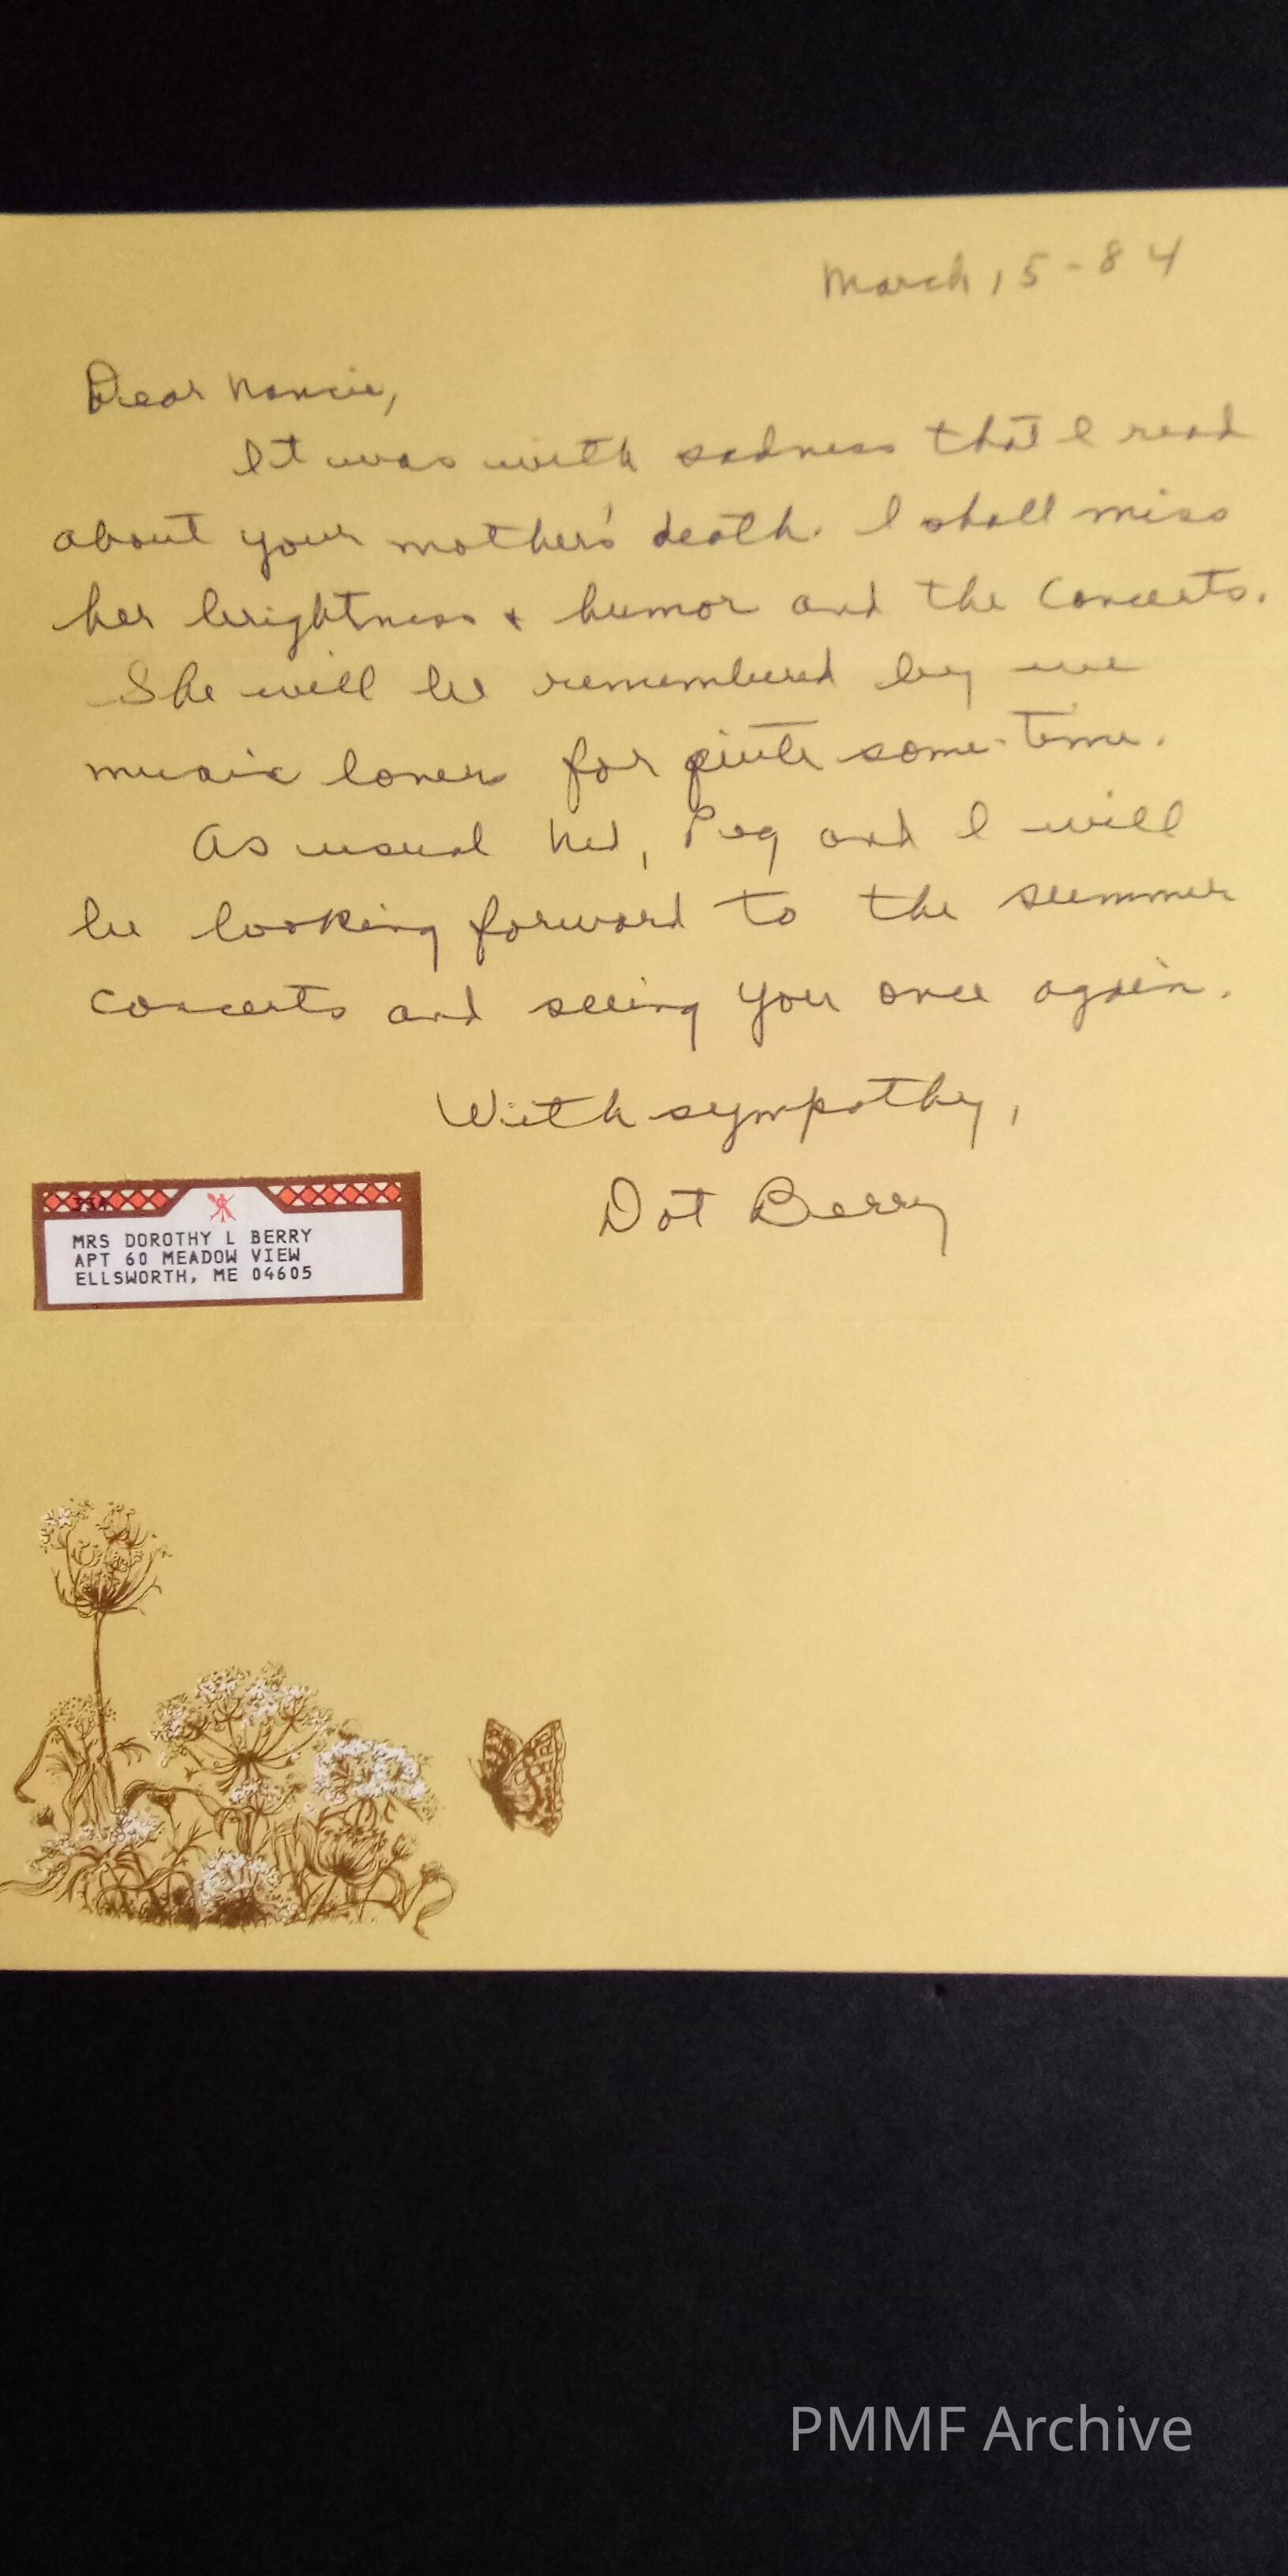 March 15-84
Dear Nancie,
It was with sadness that I read
about your mother's death. I shall miss
her brightness + humor and the Concerts.
She will be remembered by we
music lovers for quite some-time.
As usual Ned, Peg and I will
be looking forward to the summer
concerts and seeing you once again.
With sympathy,
Dot Berry
MRS DOROTHY L BERRY
APT 60 MEADOW VIEW
ELLSWORTH, ME 04605
PMMF Archive